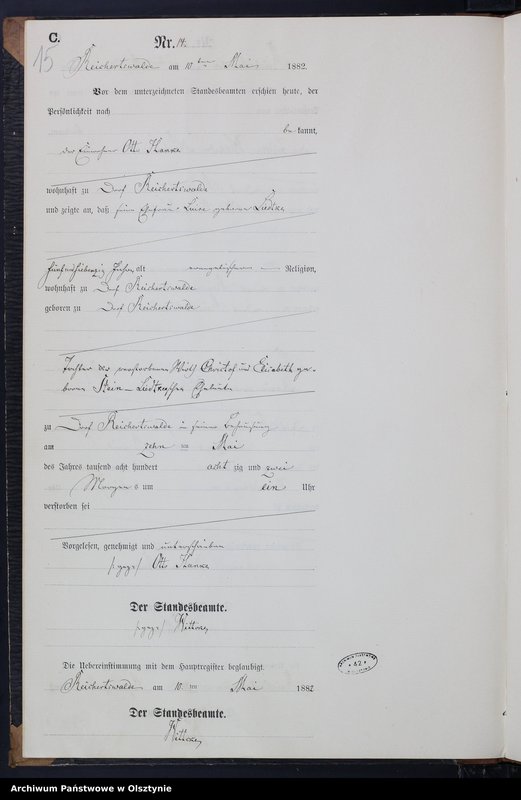 C.
Nr. 14.
15
Reichertswalde am 10 ten Mai 1882.
Vor dem unterzeichneten Standesbeamten erschien heute, der
Persönlichkeit nach
be kannt,
der Einwohner Otto
wohnhaft zu Dorf Reichertswalde
und zeigte an, daß seine Ehefrau Luise geborene Liedtke
fünfundsiebenzig Jahre, alt evangelischer Religion,
wohnhaft zu Dorf Reichertswalde
geboren zu Dorf Reichertswalde
Tochter der verstorbenen Wirth Christof und Elisabeth ge-
borene Stein - Liedtkeschen Eheleute
zu Dorf Reichertswalde in seiner Behausung
am zehn ten Mai
des Jahres tausend acht hundert acht zig und zwei
Morgen s um ein Uhr
verstorben sei
Vorgelesen, genehmigt und unterschrieben
Otto
Der Standesbeamte.
Die Uebereinstimmung mit dem Hauptregister beglaubigt.
Reichertswalde am 10 ten Mai 1882
Der Standesbeamte.
42
Archiwum Państwowe w Olsztynie